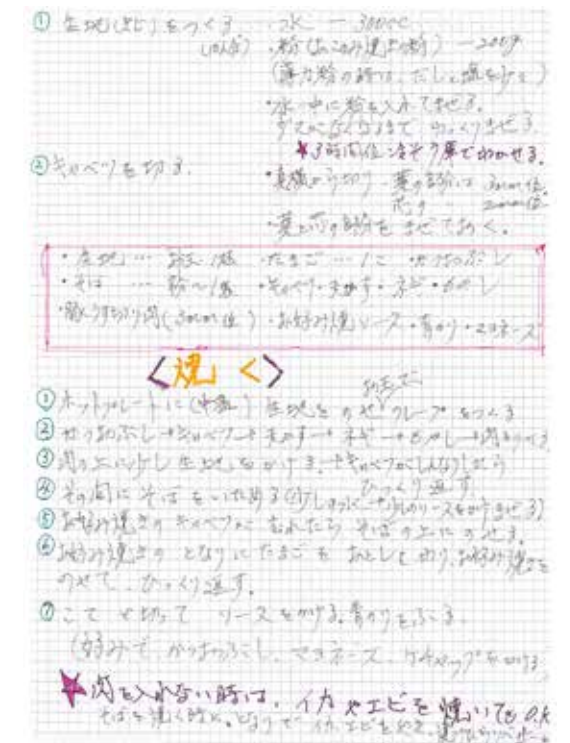 ① 生地(だし)をつくる ・水 ― 300cc
(10人分) ・粉(お好み焼きの粉) ― 200g
(薄力粉の時は、だしと塩を少々)
・水の中に粉を入れてまぜる。
ダマがなくなるまで ゆっくりまぜる。
★3時間位 冷ぞう庫でねかせる。
② キャベツを切る。 葉の部分は 3mm位
芯の 〃 2mm位
・葉と芯の部分をまぜておく。
・生地 … お玉1杯 ・たまご … 1こ ・かつおぶし
・そば ・キャベツ・天かす・ネギ・もやし
・豚うす切り肉(3mm位) ・お好み焼ソース・青のり・マヨネーズ
<焼く>
① ホットプレートに(中温) 生地をのせ クレープをつくる
② かつおぶし→キャベツ→天かす→ネギ→もやし→肉をのせる
③ 肉の上に少し生地をかける。→キャベツがしんなりしたら
ひっくり返す。
④ その間に そばをいためる
⑤ お好み焼きの キャベツが むれたら そばの上に のせる。
⑥ お好み焼きの となりに たまごを おとして お好み焼きを
のせて、ひっくり返す。
⑦ こてで切って ソースをかける。青のりをふる。
(好みで、かつおぶし、マヨネーズ、ケチャップをかける)
★肉を入れない時は、イカやエビを焼いてもO.K
そばを焼く時に、となりで イカ、エビをやき、